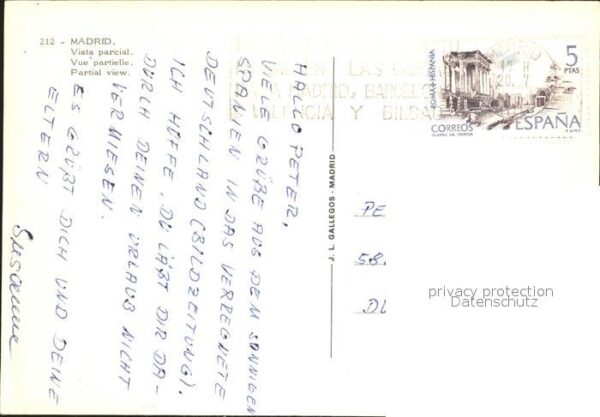 212 - MADRID.
Vista parcial.
Vue partielle.
Partial view.
HALLO PETER,
VIELE GRÜßE AUS DEM SONNIGEN
SPANIEN IN DAS VERREGNETE
DEUTSCHLAND (BILDZEITUNG).
ICH HOFFE, DU LÄßT DIR DA-
DURCH DEINEN URLAUB NICHT
VERMIESEN.
ES GRÜßT DICH UND DEINE
ELTERN
Susanne
J. L. GALLEGOS - MADRID
LAS
MADRID, BARCEL
VALENCIA Y BILBA
ROMA E HISPANIA
5
PTAS
CORREOS
TEATRO DE MERIDA
ESPAÑA
F.N.M.T.
PE
58
DL
privacy protection
Datenschutz